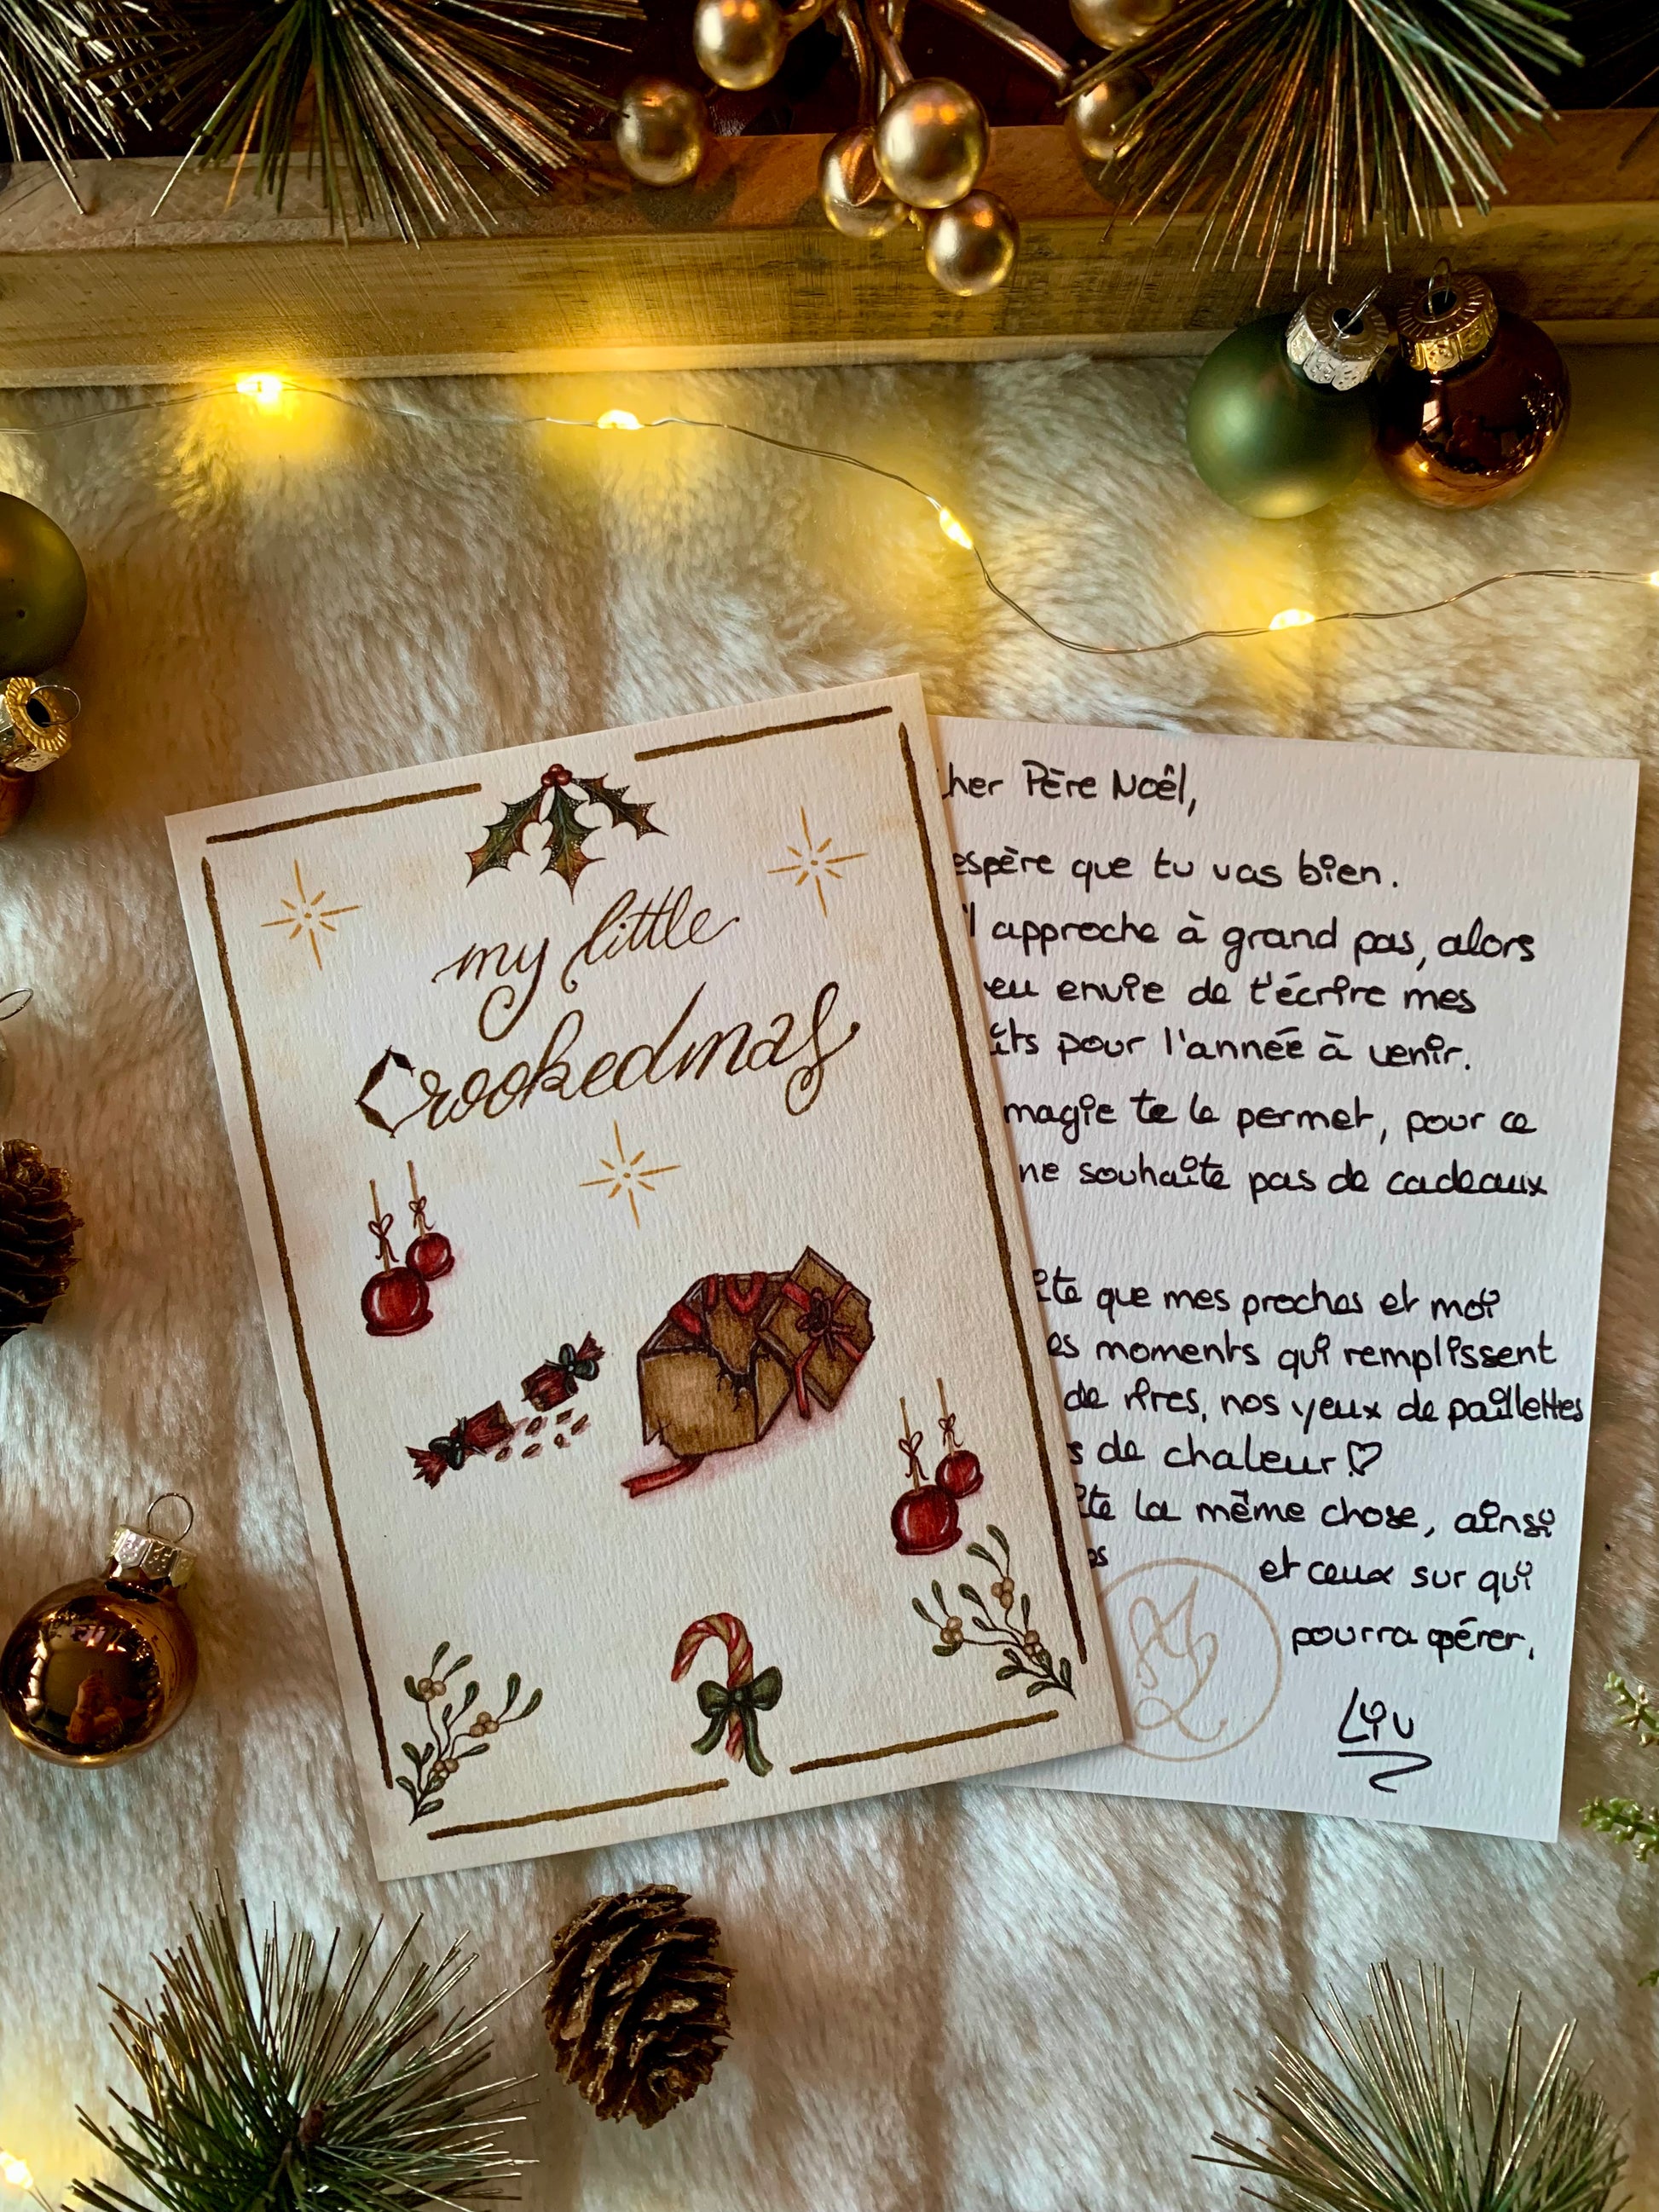 my little
Crookedmas
her Père Noël,
espère que tu vas bien.
l approche à grand pas, alors
eu envie de t'écrire mes
its pour l'année à venir.
magie te le permet, pour ce
ne souhaite pas de cadeaux
ite que mes proches et moi
es moments qui remplissent
de rires, nos yeux de paillettes
s de chaleur ♡
ite la même chose, ainsi
os et ceux sur qui
pourra opérer,
Liv